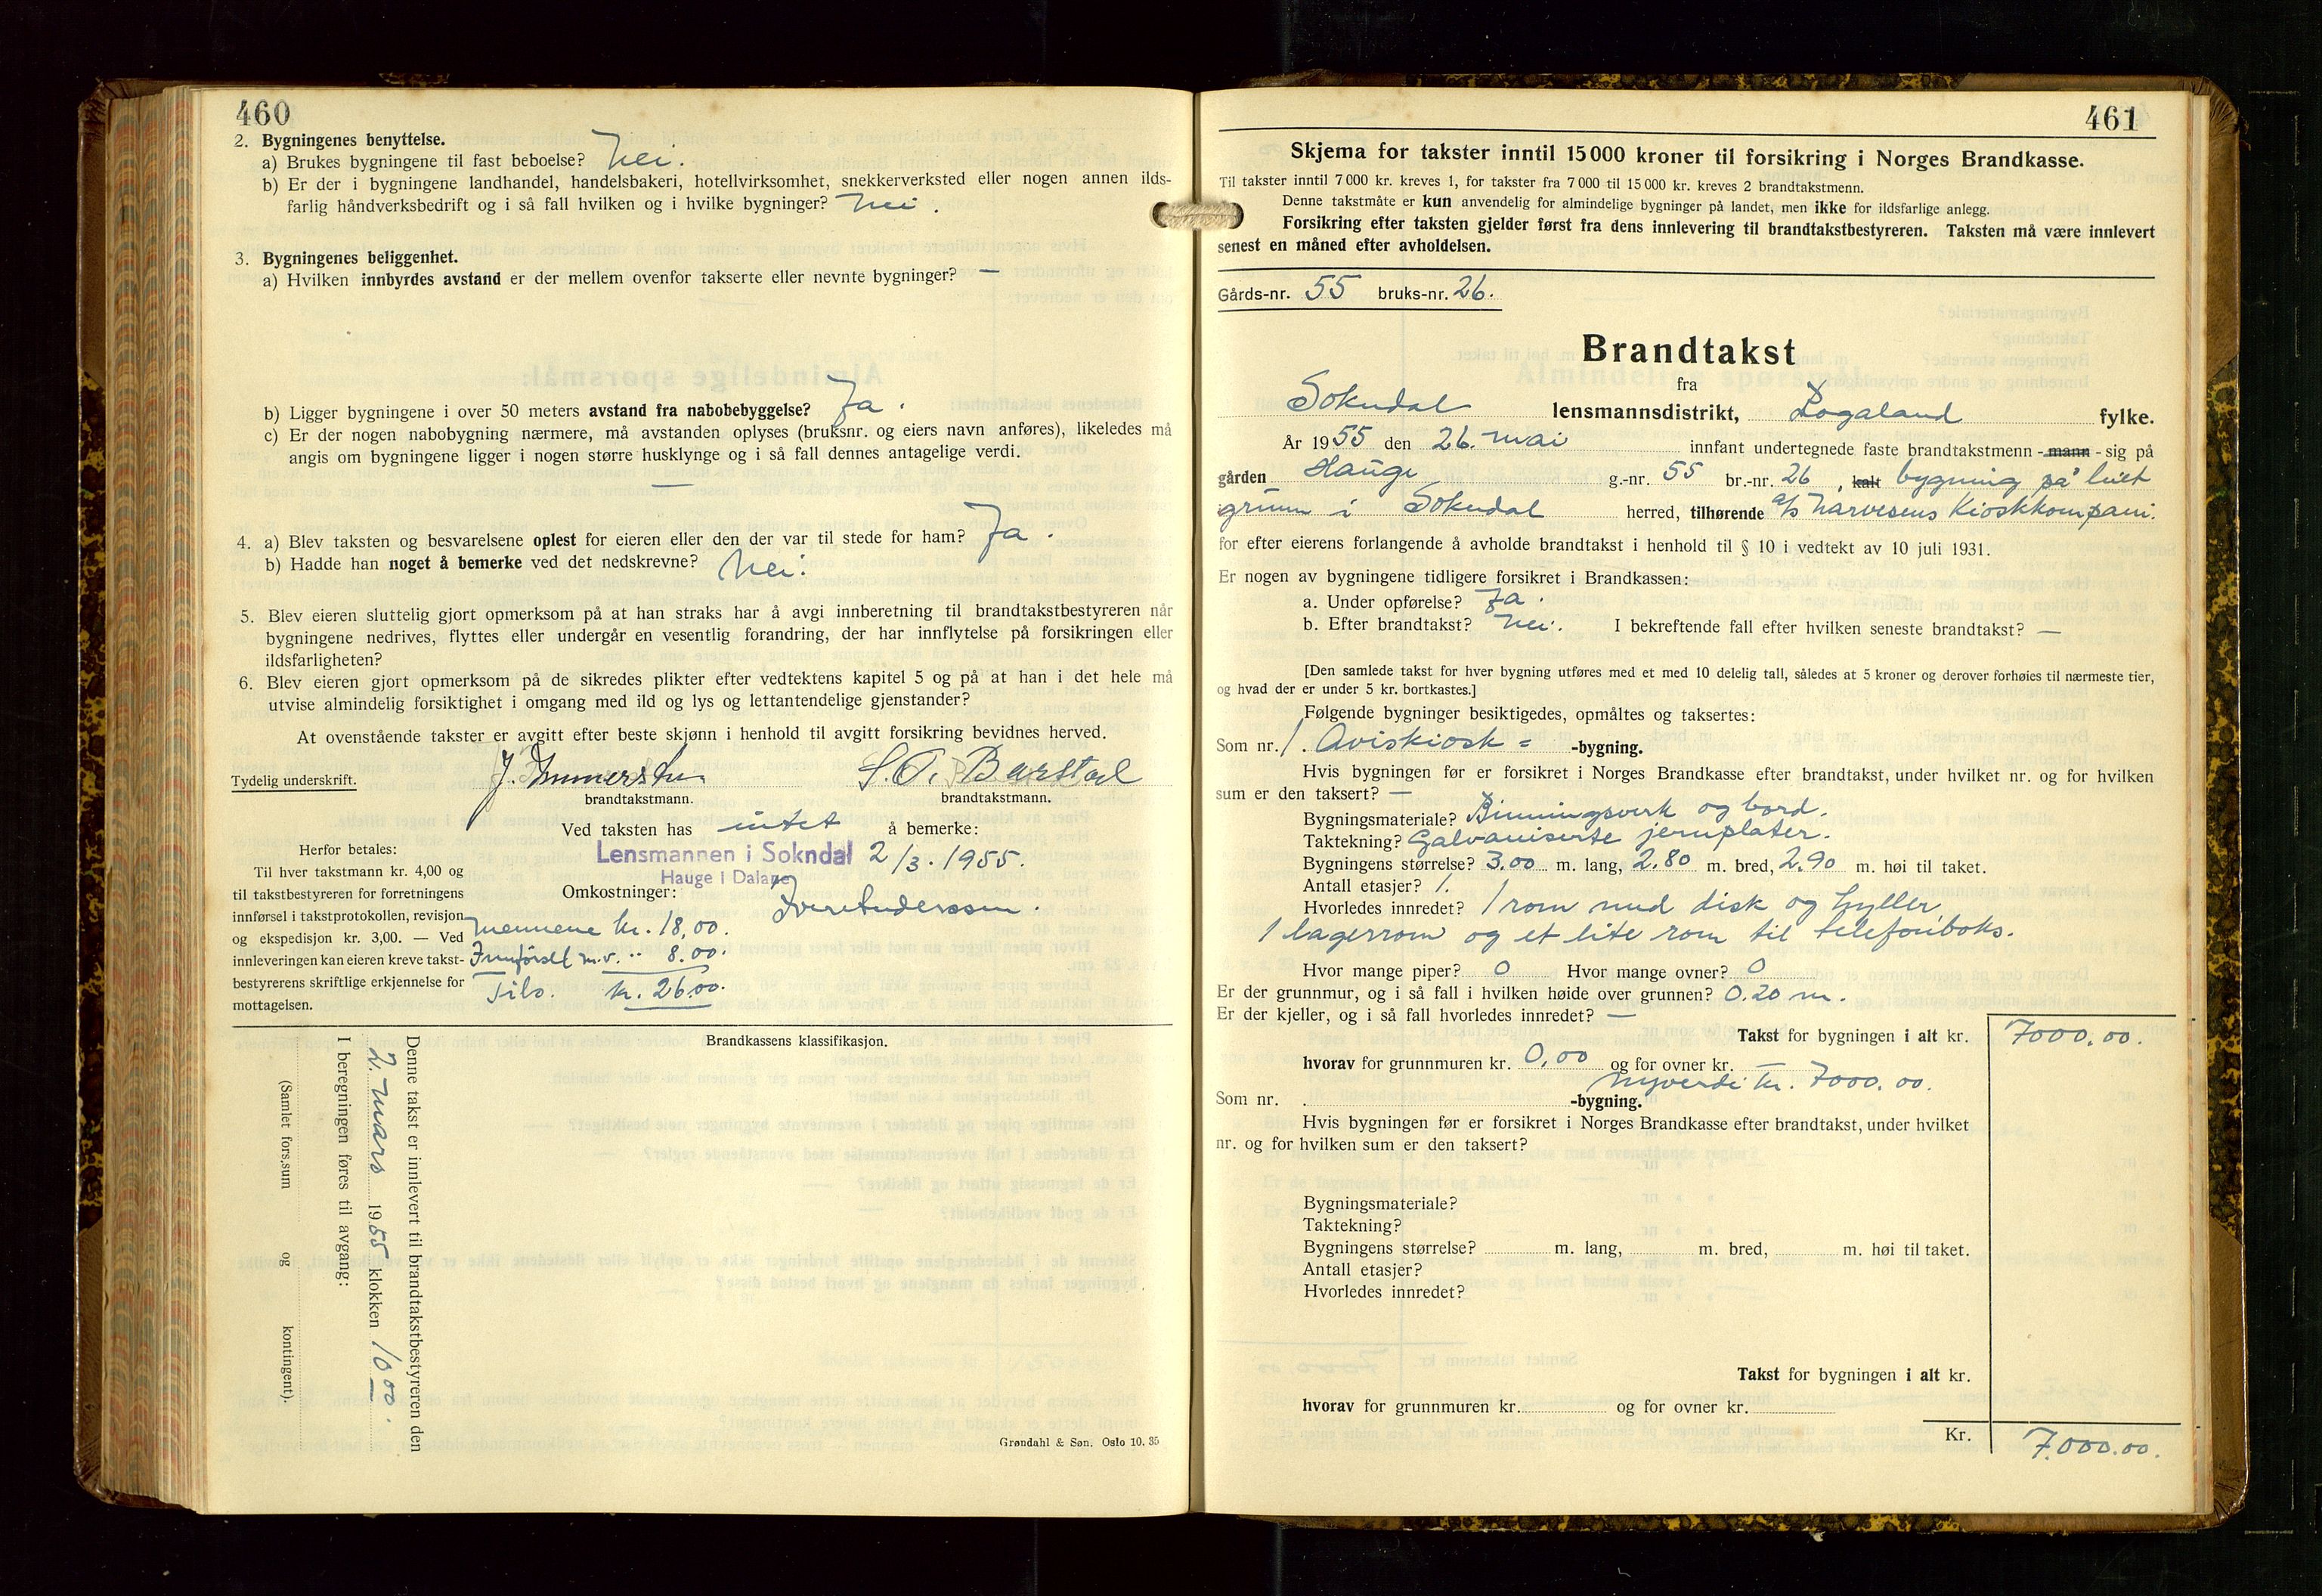 460
2. Bygningenes benyttelse.
a) Brukes bygningene til fast beboelse? Nei.
b) Er der i bygningene landhandel, handelsbakeri, hotellvirksomhet, snekkerverksted eller nogen annen ilds-
farlig håndverksbedrift og i så fall hvilken og i hvilke bygninger? Nei.
3. Bygningenes beliggenhet.
a) Hvilken innbyrdes avstand er der mellem ovenfor takserte eller nevnte bygninger? —
b) Ligger bygningene i over 50 meters avstand fra nabobebyggelse? Ja.
c) Er der nogen nabobygning nærmere, må avstanden oplyses (bruksnr. og eiers navn anføres), likeledes må
angis om bygningene ligger i nogen større husklynge og i så fall dennes antagelige verdi.
—
4. a) Blev taksten og besvarelsene oplest for eieren eller den der var til stede for ham? Ja.
b) Hadde han noget å bemerke ved det nedskrevne? Nei.
5. Blev eieren sluttelig gjort opmerksom på at han straks har å avgi innberetning til brandtakstbestyreren når
bygningene nedrives, flyttes eller undergår en vesentlig forandring, der har innflytelse på forsikringen eller
ildsfarligheten?
6. Blev eieren gjort opmerksom på de sikredes plikter efter vedtektens kapitel 5 og på at han i det hele må
utvise almindelig forsiktighet i omgang med ild og lys og lettantendelige gjenstander?
At ovenstående takster er avgitt efter beste skjønn i henhold til avgitt forsikring bevidnes herved.
Tydelig underskrift. J. S. O. Barstad
brandtakstmann. brandtakstmann.
Ved taksten has intet å bemerke:
Lensmannen i Sokndal 2/3. 1955.
Hauge i Dalane
Herfor betales:
Til hver takstmann kr. 4,00 og
til takstbestyreren for forretningens
innførsel i takstprotokollen, revisjon
og ekspedisjon kr. 3,00. — Ved
innleveringen kan eieren kreve takst-
bestyrerens skriftlige erkjennelse for
mottagelsen.
Omkostninger:
Mennene kr. 18,00.
Innførsel m.v. " 8.00.
Tils. kr. 26.00.
Brandkassens klassifikasjon.
Denne takst er innlevert til brandtakstbestyreren den
2. mars 1955 klokken 10 00.
I beregningen føres til avgang:
(Samlet fors.sum og kontingent).
Grøndahl & Søn. Oslo 10. 35
461
Skjema for takster inntil 15 000 kroner til forsikring i Norges Brandkasse.
Til takster inntil 7 000 kr. kreves 1, for takster fra 7 000 til 15 000 kr. kreves 2 brandtakstmenn.
Denne takstmåte er kun anvendelig for almindelige bygninger på landet, men ikke for ildsfarlige anlegg.
Forsikring efter taksten gjelder først fra dens innlevering til brandtakstbestyreren. Taksten må være innlevert
senest en måned efter avholdelsen.
Gårds-nr. 55 bruks-nr. 26.
Brandtakst
fra
Sokndal lensmannsdistrikt, Rogaland fylke.
År 1955 den 26. mai innfant undertegnede faste brandtakstmenn - mann - sig på
gården Hauge g.-nr. 55 br.-nr. 26, kalt bygning på leiet
grunn i Sokndal herred, tilhørende a/s Narvesens Kioskkompani.
for efter eierens forlangende å avholde brandtakst i henhold til § 10 i vedtekt av 10 juli 1931.
Er nogen av bygningene tidligere forsikret i Brandkassen:
a. Under opførelse? Ja.
b. Efter brandtakst? Nei. I bekreftende fall efter hvilken seneste brandtakst? —
[Den samlede takst for hver bygning utføres med et med 10 delelig tall, således at 5 kroner og derover forhøies til nærmeste tier,
og hvad der er under 5 kr. bortkastes.]
Følgende bygninger besiktigedes, opmåltes og taksertes:
Som nr. 1. Aviskiosk = -bygning.
Hvis bygningen før er forsikret i Norges Brandkasse efter brandtakst, under hvilket nr. og for hvilken
sum er den taksert? —
Bygningsmateriale? Binningsverk og bord.
Taktekning? Galvaniserte jernplater.
Bygningens størrelse? 3.00 m. lang, 2.80 m. bred, 2.90 m. høi til taket.
Antall etasjer? 1.
Hvorledes innredet? 1 rom med disk og hyller,
1 lagerrom og et lite rom til telefonboks.
Hvor mange piper? 0 Hvor mange ovner? 0
Er der grunnmur, og i så fall i hvilken høide over grunnen? 0.20 m.
Er der kjeller, og i så fall hvorledes innredet? —
Takst for bygningen i alt kr. 7000.00.
hvorav for grunnmuren kr. 0,00 og for ovner kr.
Nyverdi kr. 7000.00.
Som nr. . -bygning.
Hvis bygningen før er forsikret i Norges Brandkasse efter brandtakst, under hvilket
nr. og for hvilken sum er den taksert?
Bygningsmateriale?
Taktekning?
Bygningens størrelse? m. lang, m. bred, m. høi til taket.
Antall etasjer?
Hvorledes innredet?
Takst for bygningen i alt kr.
hvorav for grunnmuren kr. og for ovner kr.
Kr. 7.000.00.